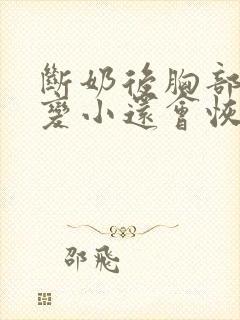 斷奶後胸部
變小還會恢
邵飛